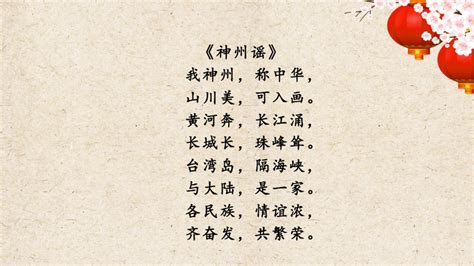 《神州谣》
我神州，称中华，
山川美，可入画。
黄河奔，长江涌，
长城长，珠峰耸。
台湾岛，隔海峡，
与大陆，是一家。
各民族，情谊浓，
齐奋发，共繁荣。